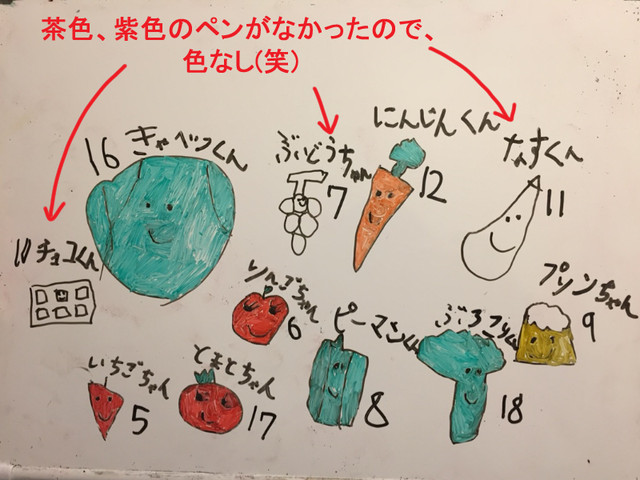 茶色、紫色のペンがなかったので、
色なし(笑)
16 きゃべつくん
ぶどうちゃん
7
にんじんくん
12
なすくん
11
10 チョコくん
りんごちゃん
6
ピーマンくん
8
ぶろっこりーくん
18
プリンちゃん
9
いちごちゃん
5
とまとちゃん
17